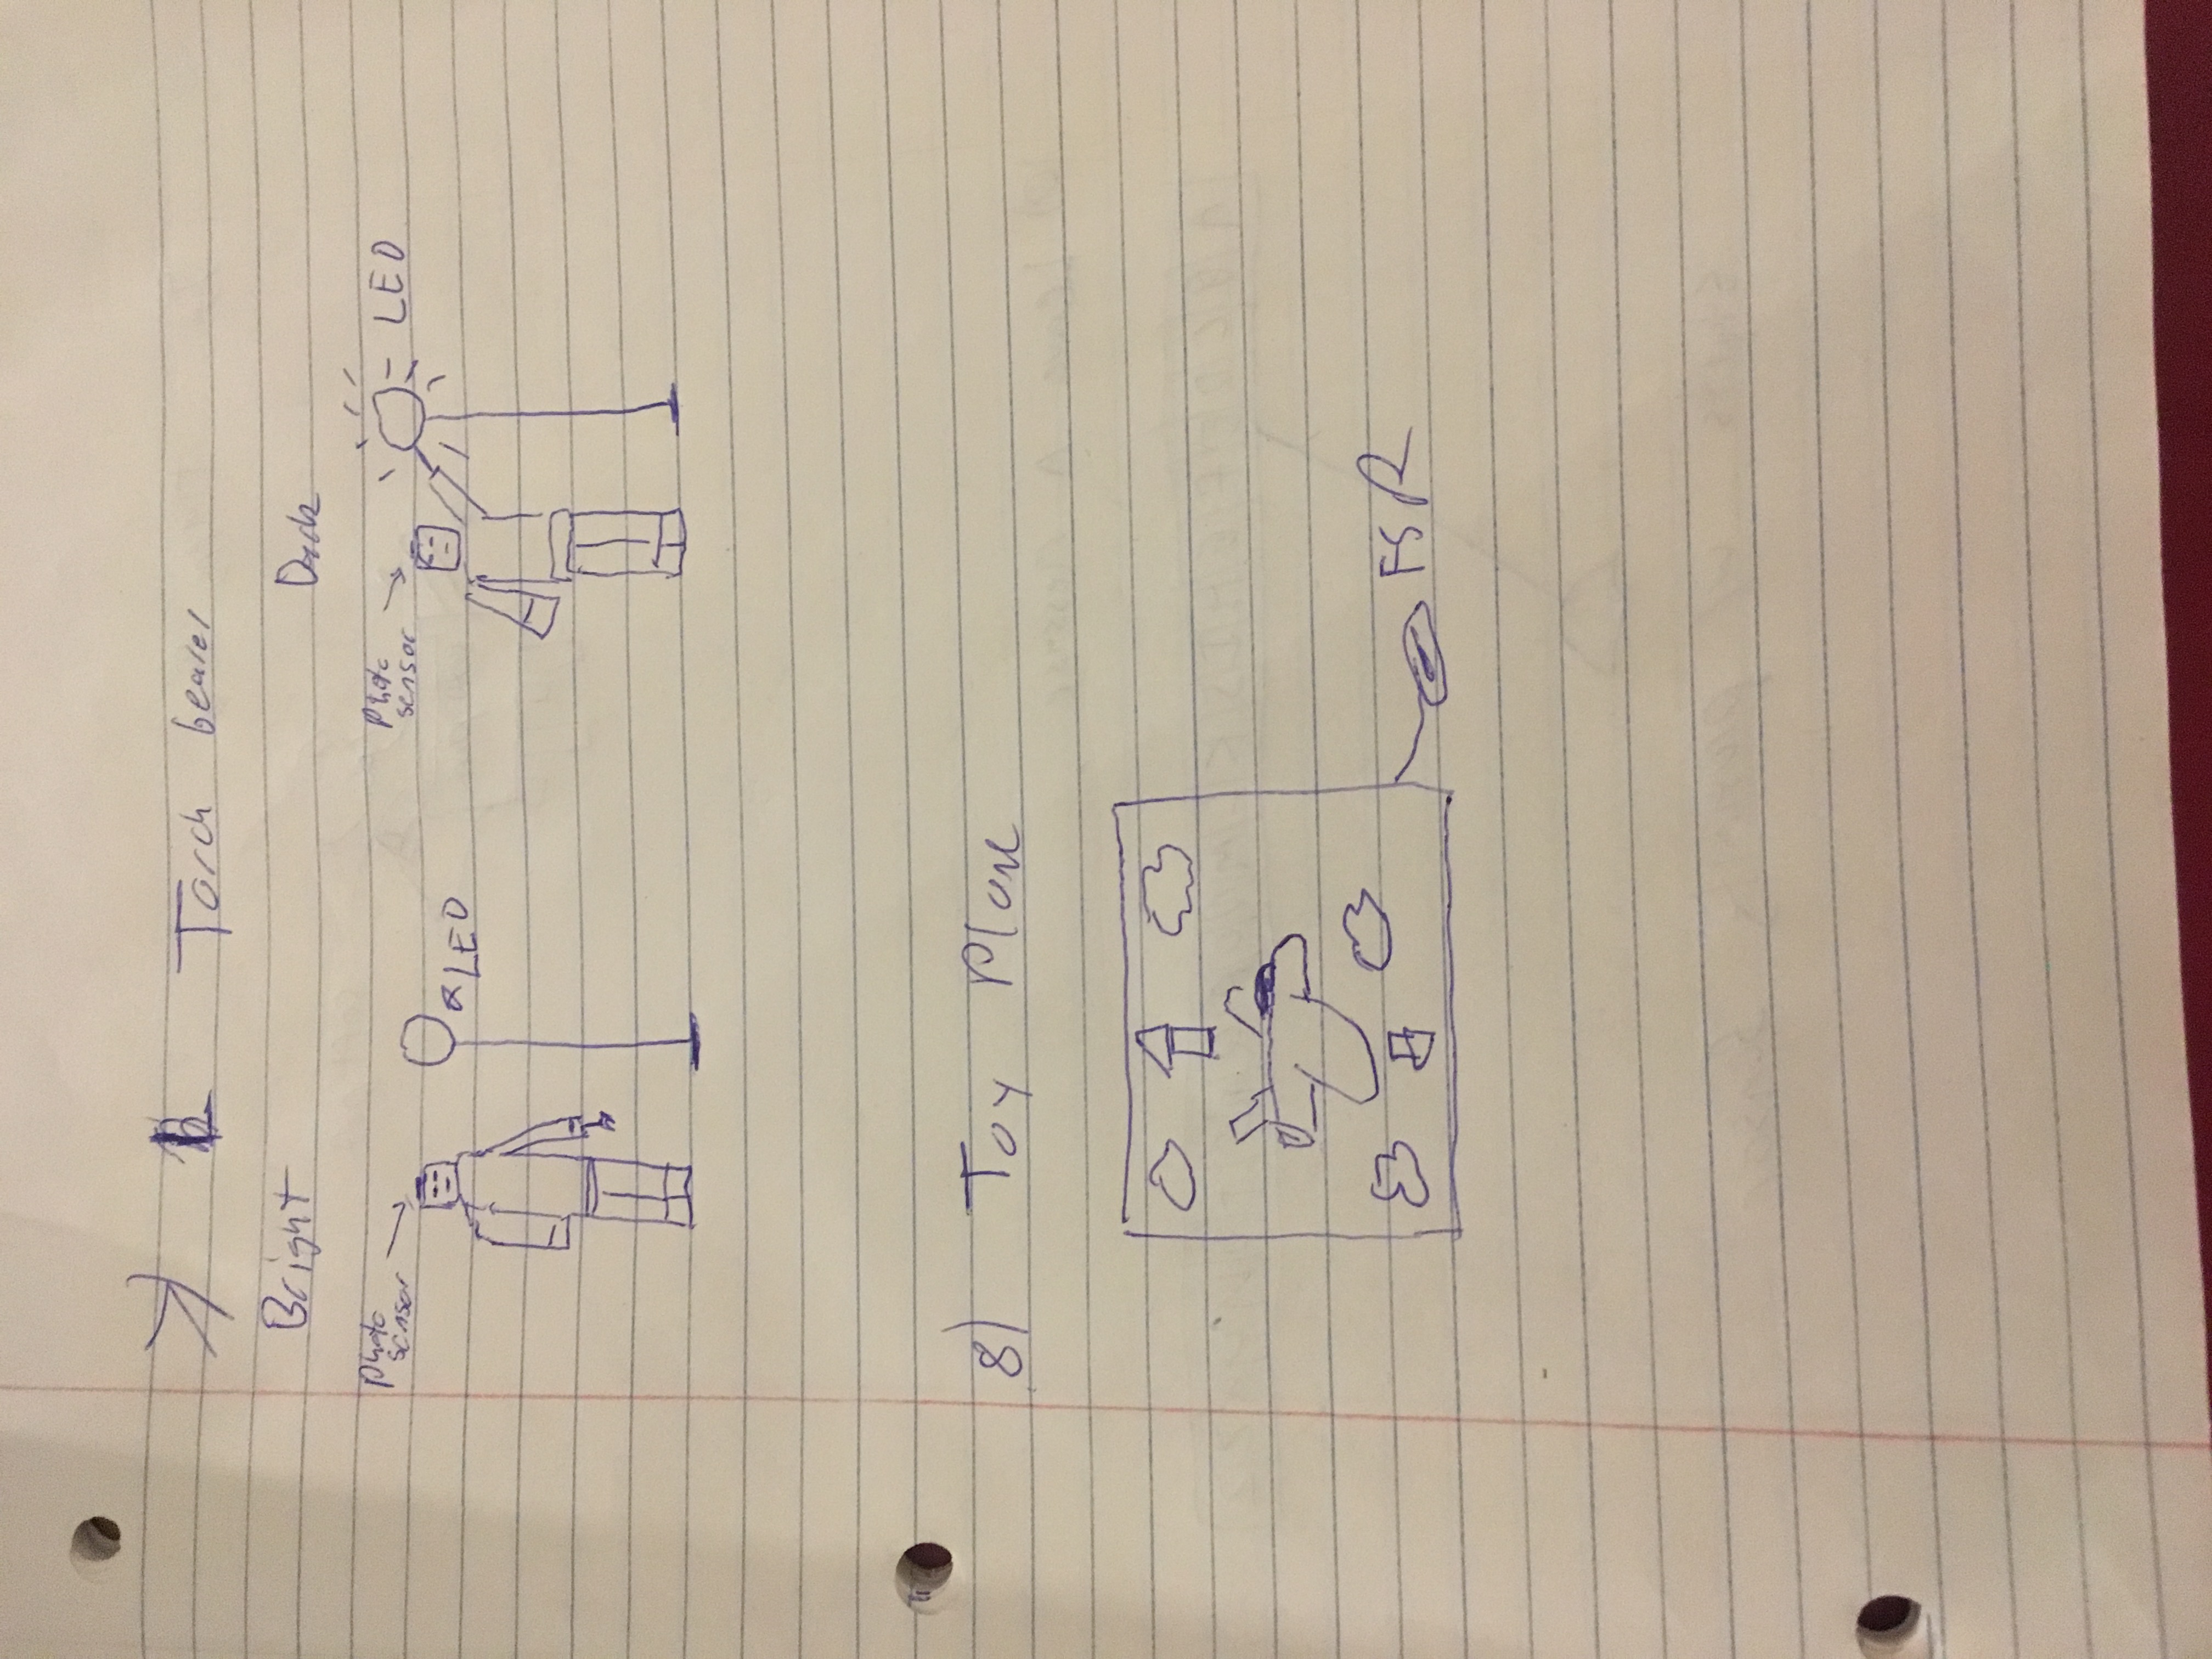 7) Torch bearer
Bright Dark
Photo
sensor
LED
Photo
sensor
LED
8) Toy Plane
FSR